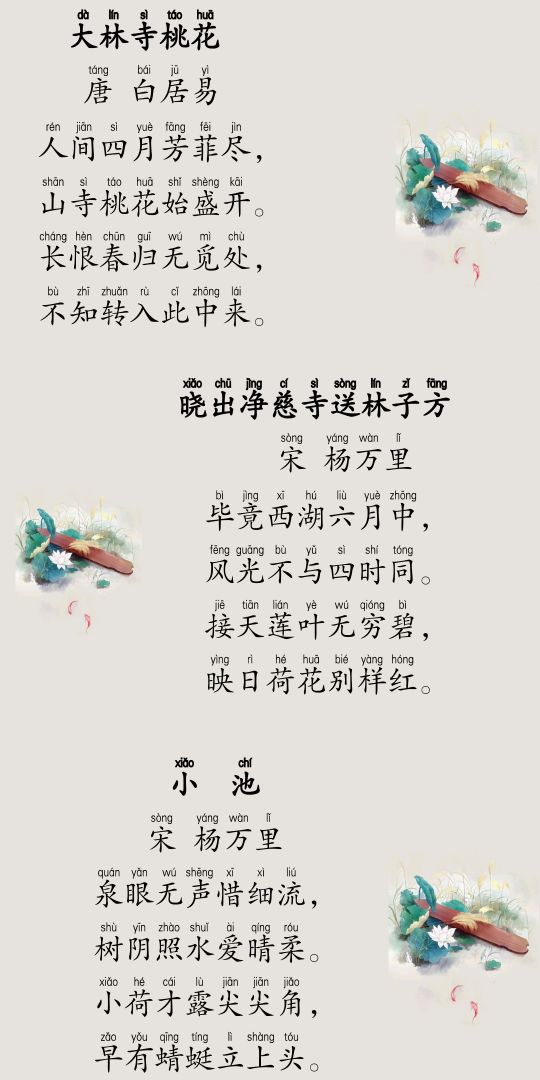 dà lín sì táo huā
大林寺桃花
táng bái jū yì
唐 白居易
rén jiān sì yuè fāng fēi jìn
人间四月芳菲尽，
shān sì táo huā shǐ shèng kāi
山寺桃花始盛开。
cháng hèn chūn guī wú mì chù
长恨春归无觅处，
bù zhī zhuǎn rù cǐ zhōng lái
不知转入此中来。
xiǎo chū jìng cí sì sòng lín zǐ fāng
晓出净慈寺送林子方
sòng yáng wàn lǐ
宋 杨万里
bì jìng xī hú liù yuè zhōng
毕竟西湖六月中，
fēng guāng bù yǔ sì shí tóng
风光不与四时同。
jiē tiān lián yè wú qióng bì
接天莲叶无穷碧，
yìng rì hé huā bié yàng hóng
映日荷花别样红。
xiǎo chí
小 池
sòng yáng wàn lǐ
宋 杨万里
quán yǎn wú shēng xī xì liú
泉眼无声惜细流，
shù yīn zhào shuǐ ài qíng róu
树阴照水爱晴柔。
xiǎo hé cái lù jiān jiān jiǎo
小荷才露尖尖角，
zǎo yǒu qīng tíng lì shàng tóu
早有蜻蜓立上头。